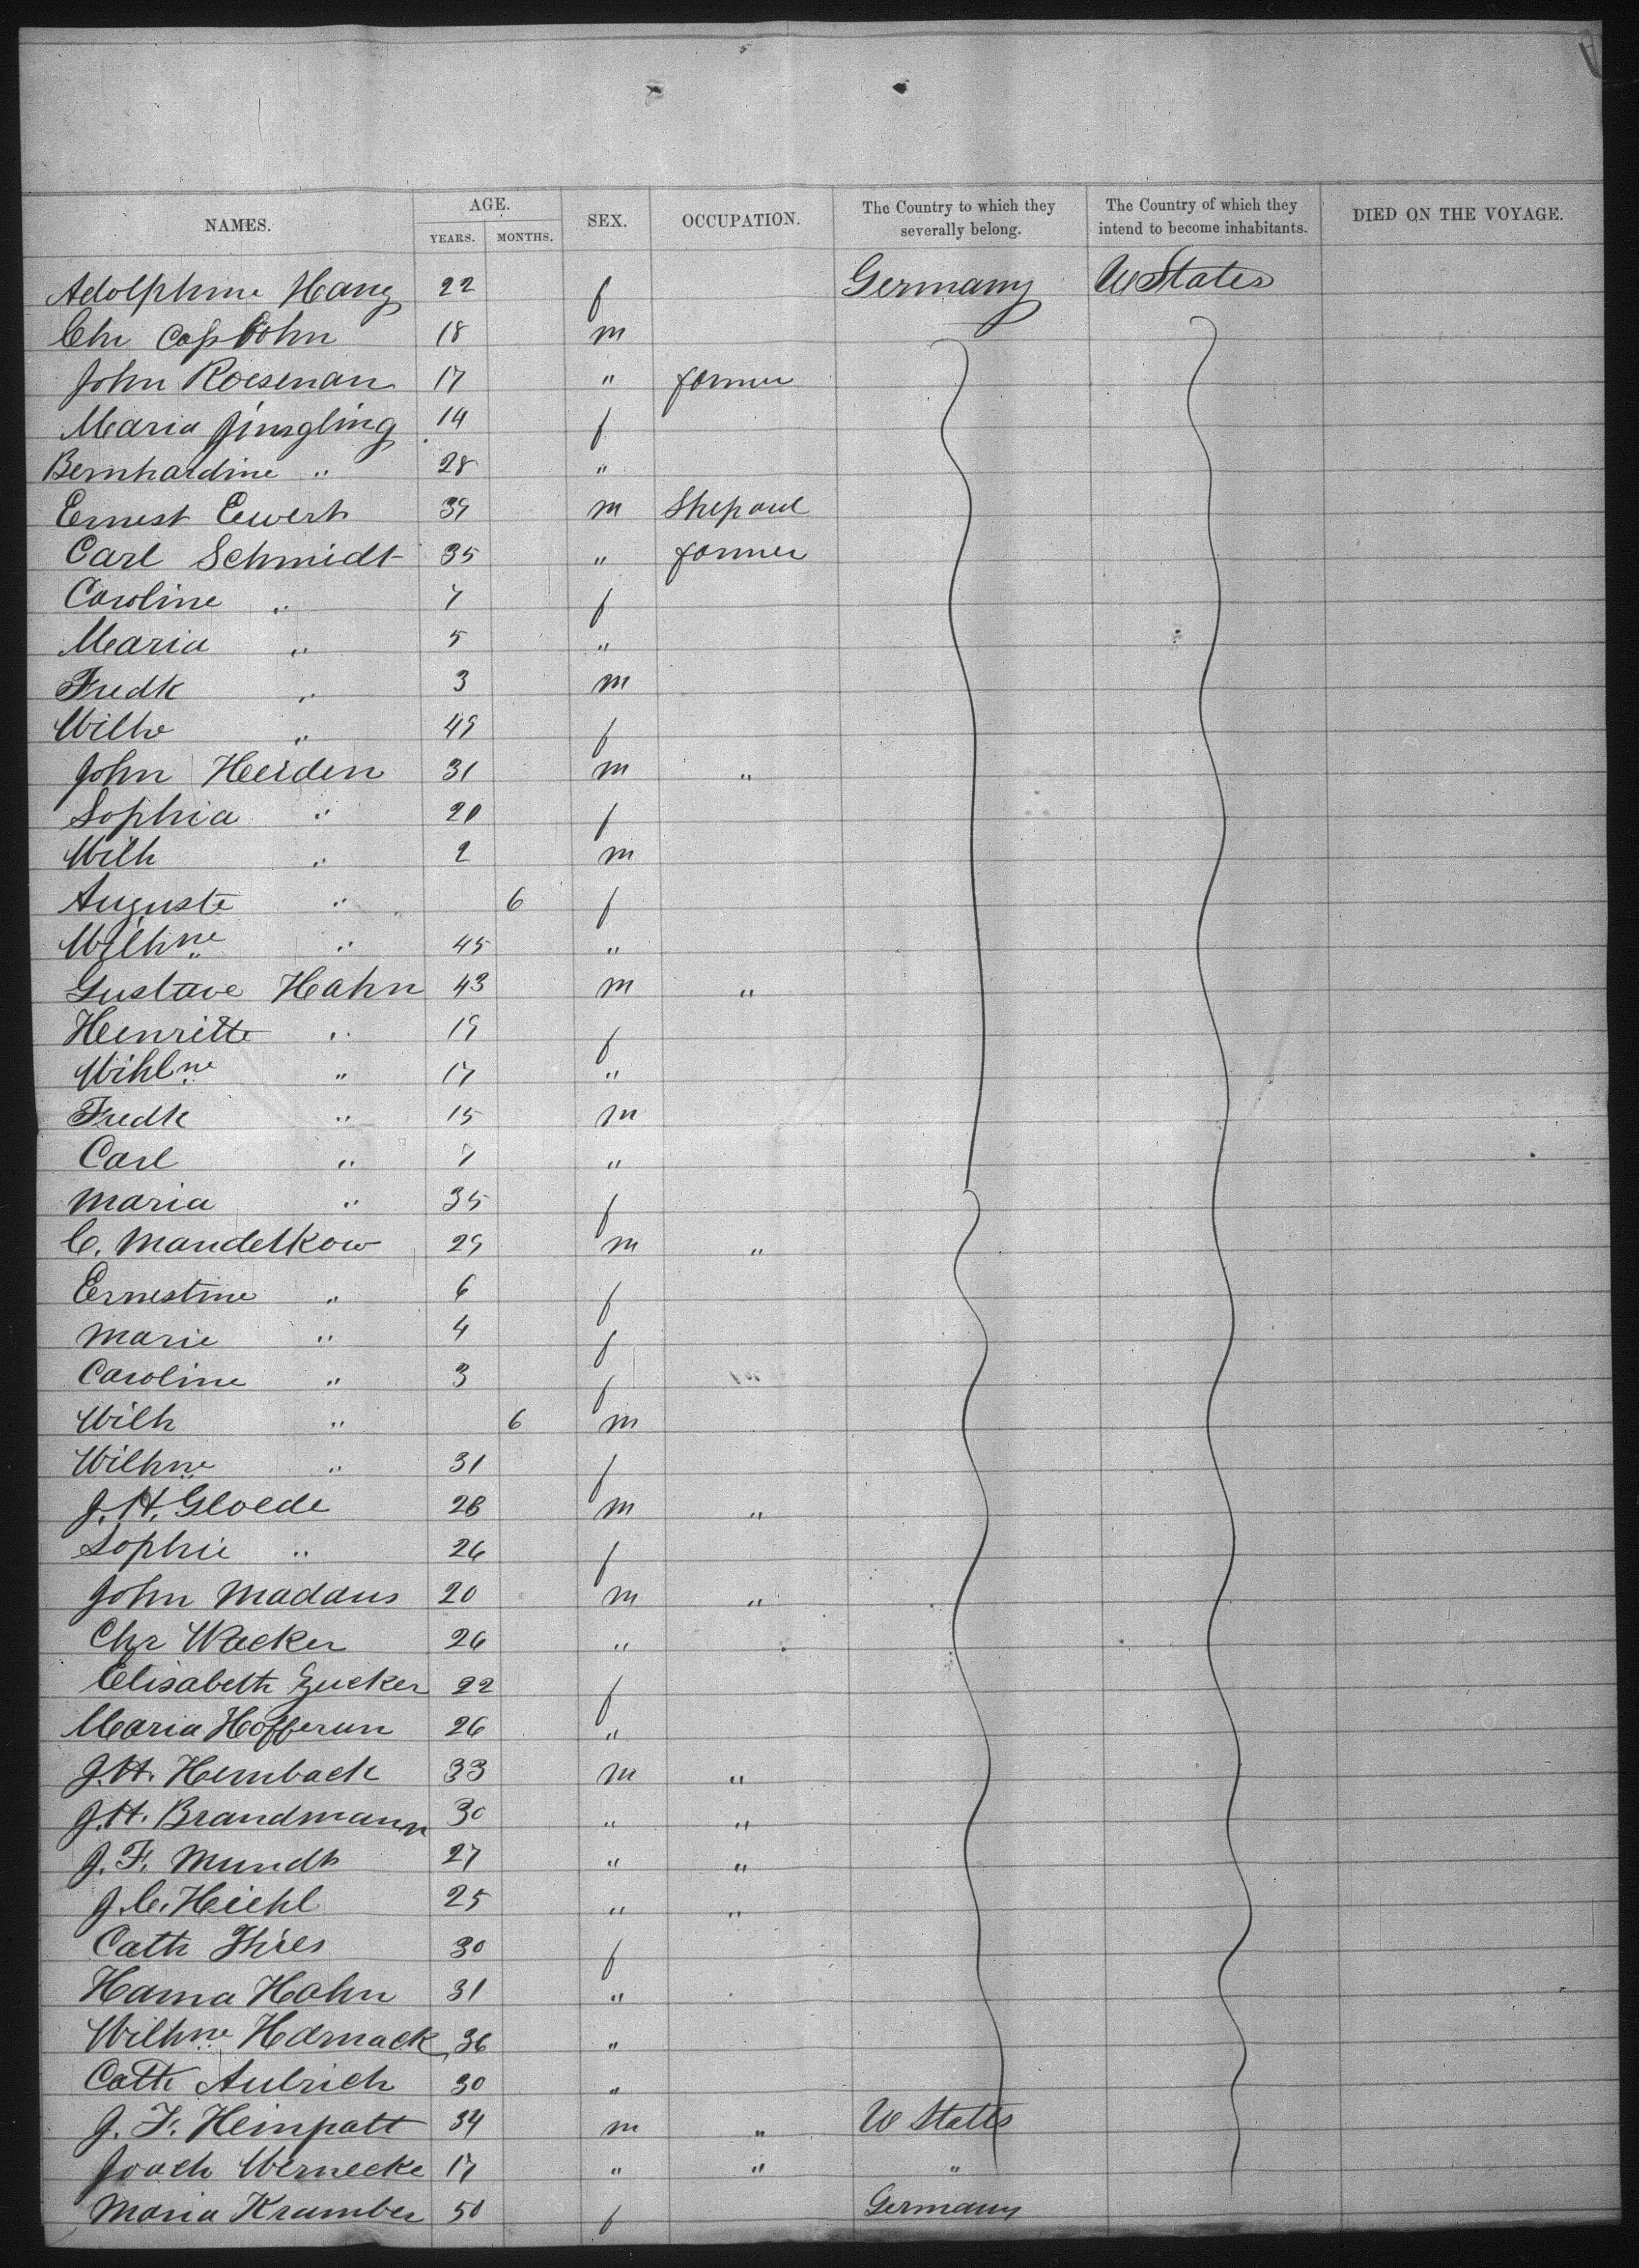 NAMES. AGE. SEX. OCCUPATION. The Country to which they severally belong. The Country of which they intend to become inhabitants. DIED ON THE VOYAGE.
YEARS. MONTHS.
Adolphine Hang 22 f Germany U States
Chr 18 m
John Roesenan 17 " farmer
Maria 14 f
Bernhardine " 28 "
Ernest Ewert 39 m Shepard
Carl Schmidt 35 " farmer
Caroline " 7 f
Maria " 5 "
Fredk " 3 m
Wilhe " 49 f
John Heiden 31 m "
Sophia " 20 f
Wilh " 2 m
Auguste " 6 f
Wilhne " 45 "
Gustave Hahn 43 m "
Henritte " 19 f
Wihlne " 17 "
Fredk " 15 m
Carl " 7 "
Maria " 35 f
C. Mandelkow 29 m "
Ernestine " 6 f
Marie " 4 f
Caroline " 3 f
Wilh " 6 m
Wilhne " 31 f
J. H. Gloede 28 m "
Sophie " 26 f
John Madaus 20 m "
Chr Wacker 26 "
Elisabeth Zucker 22 f
Maria Hofferun 26 "
J. H. Hernback 33 m "
J. H. Brandmann 30 " "
J. F. Mundt 27 " "
J. C. Hiehl 25 " "
Cath Thies 30 f
Hanna Hahn 31 "
Wilhne Harnack 36 "
Cath Aulrich 30 "
J. F. Heinpatt 34 m " U States
Joach Wernecke 17 " " "
Maria Krambee 50 f Germany